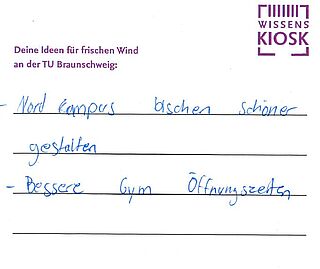 WISSENS
KIOSK
Deine Ideen für frischen Wind
an der TU Braunschweig:
- Nord campus bischen schöner
gestalten
- Bessere Gym Öffnungszeiten